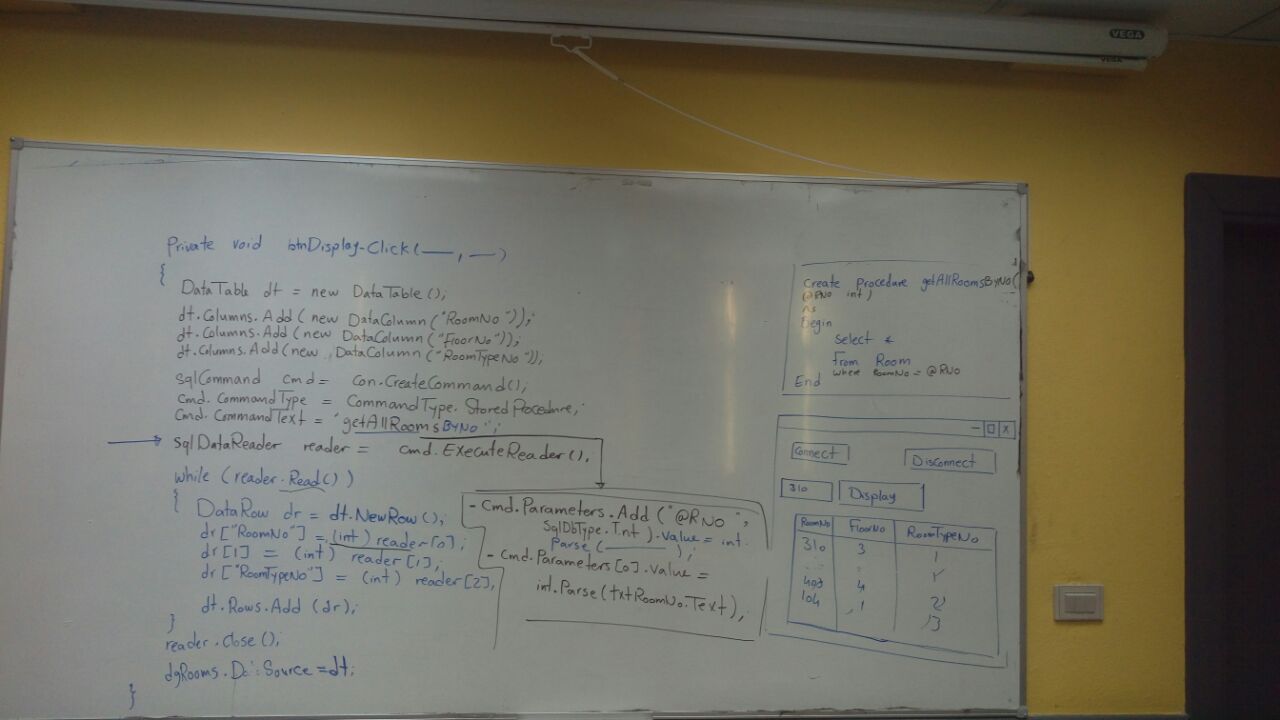 VEGA
VEGA
Private void btnDisplay-Click(___, __)
{
DataTable dt = new DataTable();
dt.Columns.Add(new DataColumn("RoomNo"));
dt.Columns.Add(new DataColumn("FloorNo"));
dt.Columns.Add(new DataColumn("RoomTypeNo"));
sqlCommand cmd = con.CreateCommand();
cmd.CommandType = CommandType.StoredProcedure;
Cmd.CommandText = "getAllRoomsByNo";
sqlDataReader reader = cmd.ExecuteReader();
while (reader.Read())
{ DataRow dr = dt.NewRow();
dr["RoomNo"] = (int) reader[0];
dr[1] = (int) reader[1];
dr["RoomTypeNo"] = (int) reader[2];
dt.Rows.Add(dr);
}
reader.close();
dgRooms. Source = dt;
}
- Cmd.Parameters.Add("@RNo",
SqlDbType.Int).Value = int.
Parse(______);
- Cmd.Parameters[0].Value =
int.Parse(txtRoomNo.Text);
Create Procedure getAllRoomsByNo(
@RNo int)
As
Begin
Select *
From Room
where RoomNo = @RNo
End
X
Connect
Disconnect
310
Display
RoomNo FloorNo RoomTypeNo
310 3 1
403 4
104 1 2
3